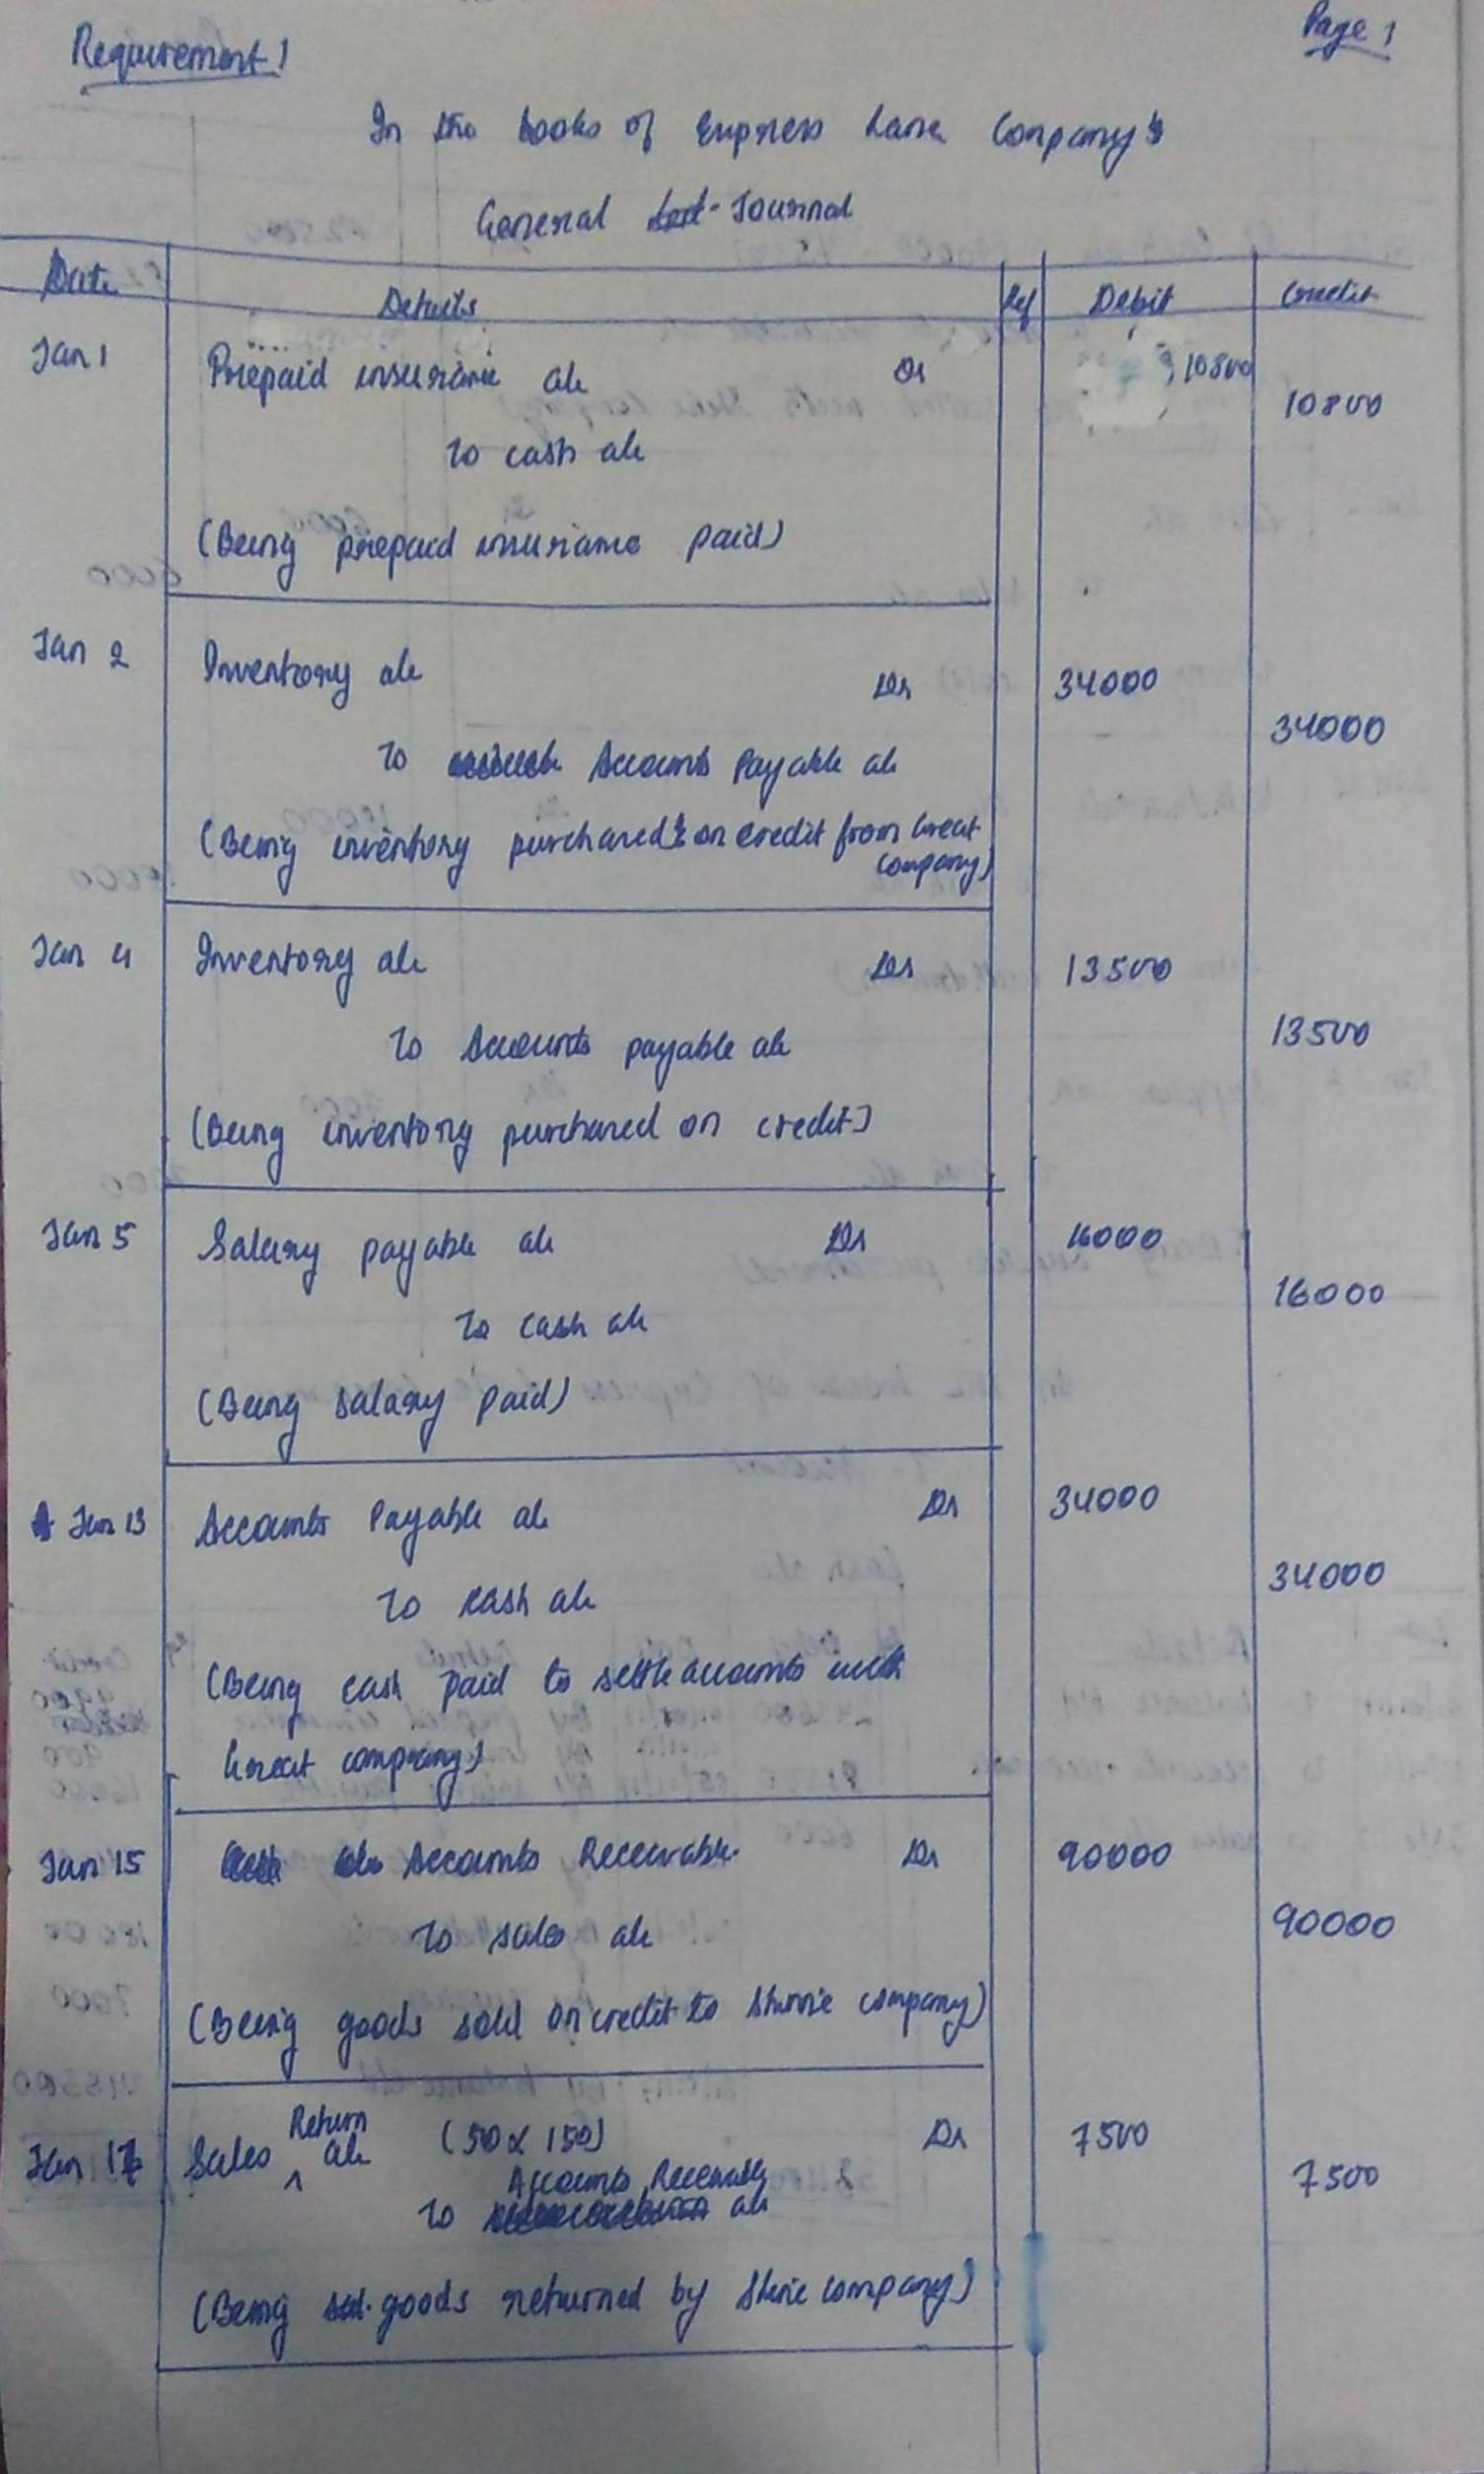 Requirement 1
Page 1
In the books of Express Lane Company's
General Journal
Date Details Ref Debit Credit
Jan 1 Prepaid insurance a/c Dr 10800
10800
To cash a/c
(Being prepaid insurance paid)
Jan 2 Inventory a/c Dr 34000
34000
To Accounts Payable a/c
(Being inventory purchased on credit from Great
company)
Jan 4 Inventory a/c Dr 13500
To Accounts payable a/c 13500
(Being inventory purchased on credit)
Jan 5 Salary payable a/c Dr 16000
To cash a/c 16000
(Being salary paid)
Jan 13 Accounts Payable a/c Dr 34000
To cash a/c 34000
(Being cash paid to settle accounts with
Great company)
Jan 15 Accounts Receivable Dr 90000
To sales a/c 90000
(Being goods sold on credit to Shine company)
Jan 17 Sales Return a/c (50 x 150) Dr 7500
To Accounts Receivable a/c 7500
(Being goods returned by Shine company)